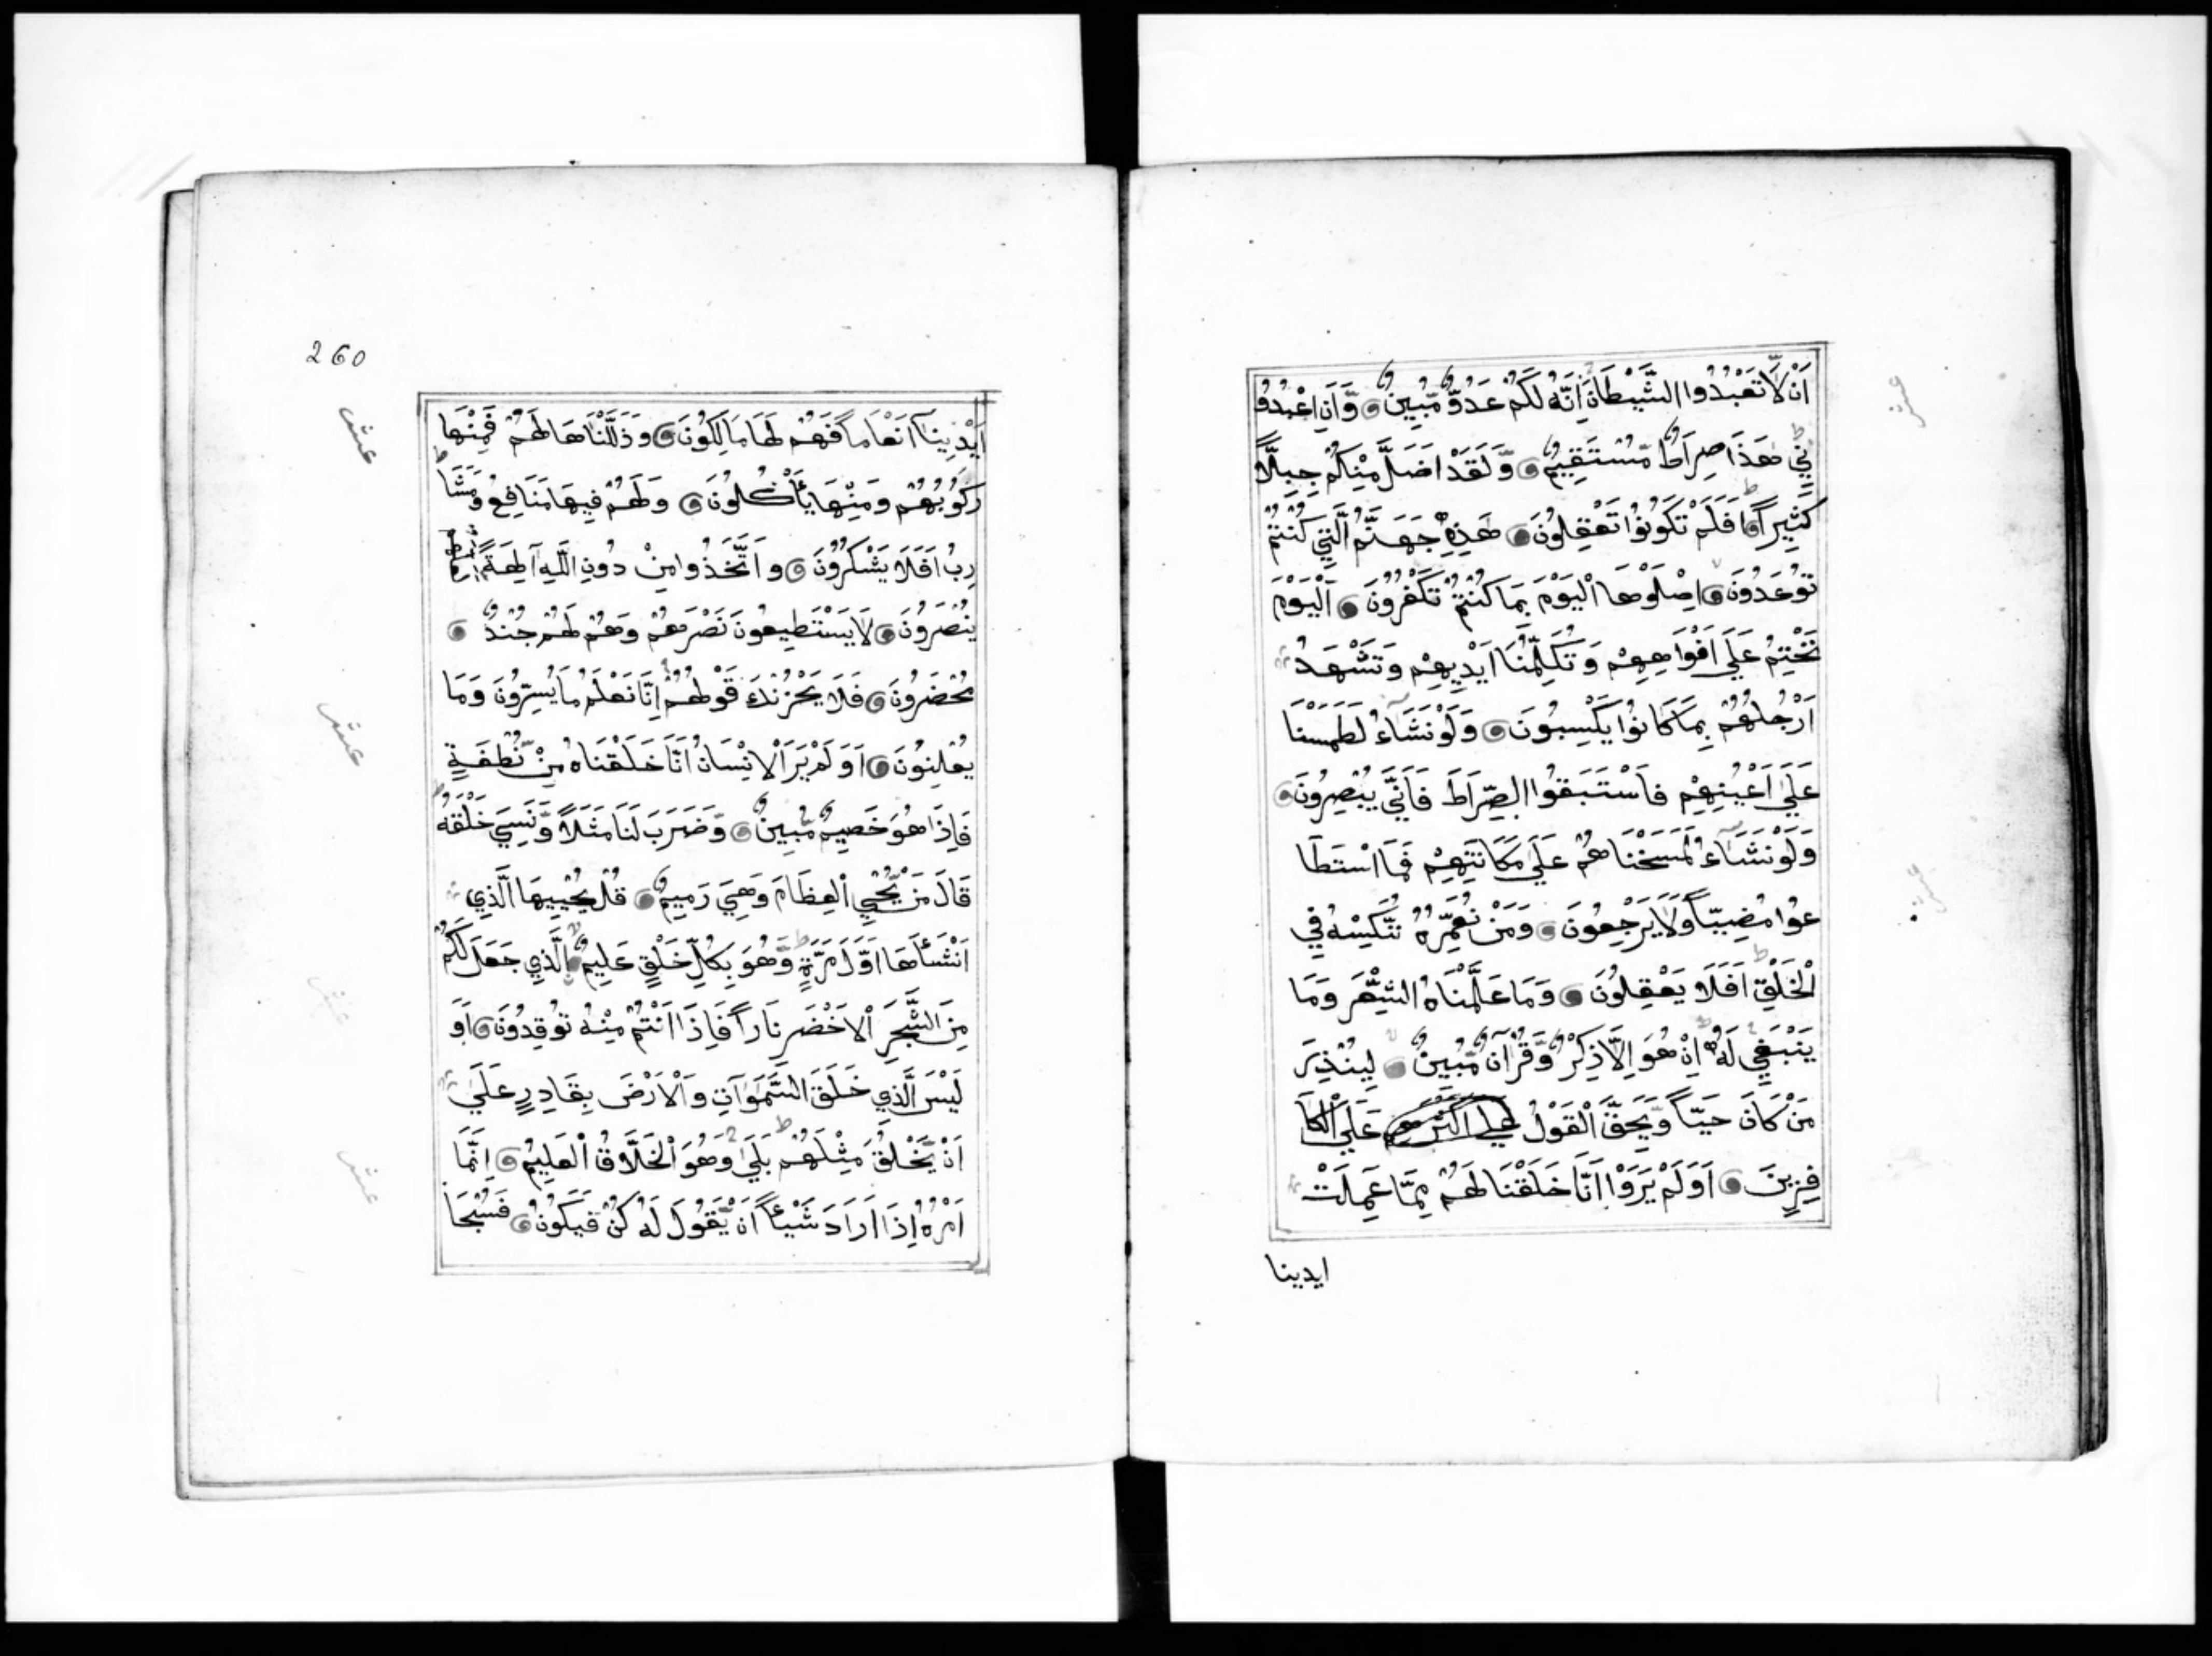 اَنْ لَّا تَعْبُدُوا الشَّيْطَانَ اِنَّهُ لَكُمْ عَدُوٌّ مُّبِينٌ وَّاَنِ اعْبُدُو
نِي هَذَا صِرَاطٌ مُّسْتَقِيمٌ وَّلَقَدْ اَضَلَّ مِنْكُمْ جِبِلًّا
كَثِيراً اَفَلَمْ تَكُونُوا تَعْقِلُونَ هَذِهِ جَهَنَّمُ الَّتِي كُنْتُمْ
تُوعَدُونَ اِصْلَوْهَا الْيَوْمَ بِمَا كُنْتُمْ تَكْفُرُونَ اَلْيَوْمَ
نَخْتِمُ عَلَى اَفْوَاهِهِمْ وَتُكَلِّمُنَا اَيْدِيهِمْ وَتَشْهَدُ
اَرْجُلُهُمْ بِمَا كَانُوا يَكْسِبُونَ وَلَوْ نَشَاءُ لَطَمَسْنَا
عَلَى اَعْيُنِهِمْ فَاسْتَبَقُوا الصِّرَاطَ فَاَنَّى يُبْصِرُونَ
وَلَوْ نَشَاءُ لَمَسَخْنَاهُمْ عَلَى مَكَانَتِهِمْ فَمَا اسْتَطَا
عُوا مُضِيّاً وَلَا يَرْجِعُونَ وَمَنْ نُعَمِّرْهُ نُنَكِّسْهُ فِي
الْخَلْقِ اَفَلَا يَعْقِلُونَ وَمَا عَلَّمْنَاهُ الشِّعْرَ وَمَا
يَنْبَغِي لَهُ اِنْ هُوَ اِلَّا ذِكْرٌ وَّقُرْآنٌ مُّبِينٌ لِيُنْذِرَ
مَنْ كَانَ حَيّاً وَّيَحِقَّ الْقَوْلُ عَلَى اَكْثَرِهِمْ عَلَى الْكَا
فِرِينَ اَوَلَمْ يَرَوْا اَنَّا خَلَقْنَا لَهُمْ مِمَّا عَمِلَتْ
ايدينا
260
اَيْدِينَا اَنْعَاماً فَهُمْ لَهَا مَالِكُونَ وَذَلَّلْنَاهَا لَهُمْ فَمِنْهَا
رَكُوبُهُمْ وَمِنْهَا يَأْكُلُونَ وَلَهُمْ فِيهَا مَنَافِعُ وَمَشَا
رِبُ اَفَلَا يَشْكُرُونَ وَاتَّخَذُوا مِنْ دُونِ اللَّهِ آلِهَةً لَعَلَّهُمْ
يُنْصَرُونَ لَا يَسْتَطِيعُونَ نَصْرَهُمْ وَهُمْ لَهُمْ جُنْدٌ
مُحْضَرُونَ فَلَا يَحْزُنْكَ قَوْلُهُمْ اِنَّا نَعْلَمُ مَا يُسِرُّونَ وَمَا
يُعْلِنُونَ اَوَلَمْ يَرَ الْاِنْسَانُ اَنَّا خَلَقْنَاهُ مِنْ نُّطْفَةٍ
فَاِذَا هُوَ خَصِيمٌ مُّبِينٌ وَّضَرَبَ لَنَا مَثَلًا وَّنَسِيَ خَلْقَهُ
قَالَ مَنْ يُّحْيِي الْعِظَامَ وَهِيَ رَمِيمٌ قُلْ يُحْيِيهَا الَّذِي
اَنْشَأَهَا اَوَّلَ مَرَّةٍ وَّهُوَ بِكُلِّ خَلْقٍ عَلِيمٌ الَّذِي جَعَلَ لَكُمْ
مِنَ الشَّجَرِ الْاَخْضَرِ نَاراً فَاِذَا اَنْتُمْ مِنْهُ تُوقِدُونَ اَوَ
لَيْسَ الَّذِي خَلَقَ السَّمٰوَاتِ وَالْاَرْضَ بِقَادِرٍ عَلَى
اَنْ يَّخْلُقَ مِثْلَهُمْ بَلَى وَهُوَ الْخَلَّاقُ الْعَلِيمُ اِنَّمَا
اَمْرُهُ اِذَا اَرَادَ شَيْئاً اَنْ يَّقُولَ لَهُ كُنْ فَيَكُونُ فَسُبْحَا
عشر
عشر
عشر
عشر